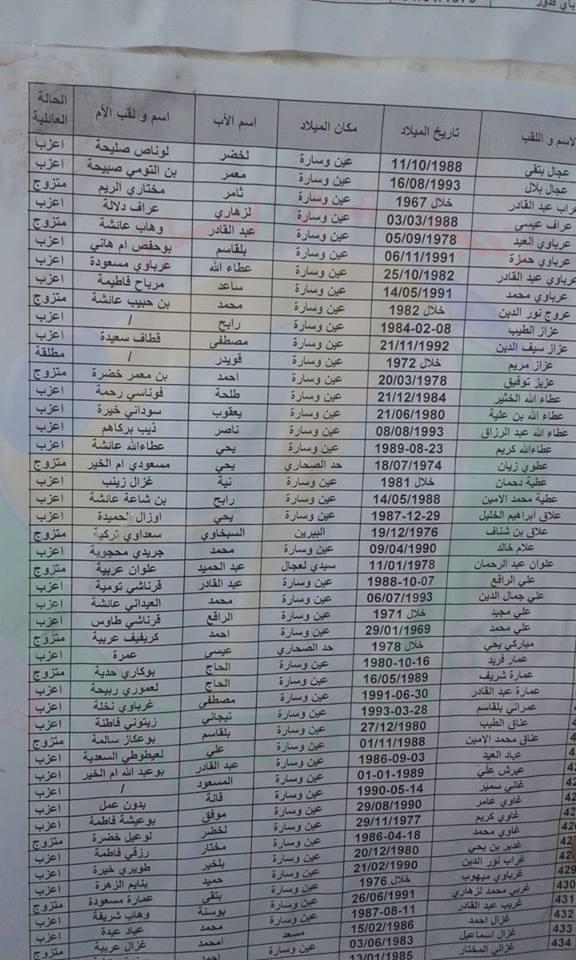 الاسم و اللقب تاريخ الميلاد مكان الميلاد اسم الأب اسم و لقب الأم الحالة العائلية
عجال بتقي 11/10/1988 عين وسارة لخضر لوناص صليحة اعزب
عجال بلال 16/08/1993 عين وسارة معمر بن التومي صبيحة اعزب
عراب عبد القادر خلال 1967 عين وسارة ثامر مختاري الريم متزوج
عراف عيسى 03/03/1988 عين وسارة لزهاري عراف دلالة اعزب
عرباوي العيد 05/09/1978 عين وسارة عبد القادر وهاب عائشة متزوج
عرباوي حمزة 06/11/1991 عين وسارة بلقاسم بوحفص ام هاني اعزب
عرباوي عبد القادر 25/10/1982 عين وسارة عطاء الله عرباوي مسعودة اعزب
عرباوي محمد 14/05/1991 عين وسارة ساعد مرباح فاطيمة اعزب
عروج نور الدين خلال 1982 عين وسارة محمد بن حبيب عائشة متزوج
عزاز الطيب 1984-02-08 عين وسارة رابح / اعزب
عزاز سيف الدين 21/11/1992 عين وسارة مصطفى قطاف سعيدة اعزب
عزاز مريم خلال 1972 عين وسارة قويدر / مطلقة
عزيز توفيق 20/03/1978 عين وسارة احمد بن معمر خضرة متزوج
عطاء الله الخثير 21/12/1984 عين وسارة طلحة فوناسي رحمة اعزب
عطاء الله بن علية 21/06/1980 عين وسارة يعقوب سوداني خيرة اعزب
عطاء الله عبد الرزاق 08/08/1993 عين وسارة ناصر ذيب بركاهم اعزب
عطاءالله كريم 1989-08-23 عين وسارة يحي عطاءالله عائشة اعزب
عطوي زيان 18/07/1974 حد الصحاري يحي مسعودي ام الخير متزوج
عطية دحمان خلال 1981 عين وسارة نية غزال زينب اعزب
عطية محمد الامين 14/05/1988 عين وسارة رابح بن شاعة عائشة اعزب
علاق ابراهيم الخليل 1987-12-29 عين وسارة يحي اوزال الحميدة اعزب
علاق بن شناف 19/12/1976 البيرين السبخاوي سعداوي تركية متزوج
علام خالد 09/04/1990 عين وسارة محمد جريدي محجوبة اعزب
علوان عبد الرحمان 11/01/1978 سيدي لعجال عبد الحميد علوان عربية متزوج
علي الرافع 1988-10-07 عين وسارة عبد القادر قرناشي تومية اعزب
علي جمال الدين 06/07/1993 عين وسارة محمد العيداني عائشة اعزب
علي مجيد خلال 1971 عين وسارة الرافع قرناشي طاوس اعزب
علي محمد 29/01/1969 عين وسارة احمد كريفيف عربية متزوج
مباركي يحي خلال 1978 حد الصحاري عيسى عمرة اعزب
عمار فريد 1980-10-16 عين وسارة الحاج بوكاري حدية متزوج
عمارة شريف 16/05/1989 عين وسارة الحاج لعموري ربيحة اعزب
عمارة عبد القادر 1991-06-30 عين وسارة مصطفى غرباوي نخلة اعزب
عمراني بلقاسم 1993-03-28 عين وسارة تيجاني زيتوني فاطنة اعزب
عناق الطيب 27/12/1980 عين وسارة بلقاسم بوعكاز سالمة متزوج
عناق محمد الامين 01/11/1988 عين وسارة علي لعيطوطي السعدية اعزب
عياد العيد 1986-09-03 عين وسارة عبد القادر بوعبد الله ام الخير اعزب
عيرش علي 01-01-1989 عين وسارة المسعود / اعزب
غاني سمير 1990-05-14 عين وسارة قانة بدون عمل اعزب
غاوي عامر 29/08/1990 عين وسارة موفق بوعيشة فاطمة اعزب
غاوي كريم 29/11/1977 عين وسارة لخضر لوعيل خضرة متزوج
غاوي محمد 1986-04-18 عين وسارة مختار رزقي فاطمة اعزب
غدير بن يحي 20/12/1980 عين وسارة بلخير طويري خيرة اعزب
غراب نور الدين 21/02/1990 عين وسارة حميد بنايم الزهرة اعزب
غرباوي ميهوب خلال 1976 عين وسارة بتقي عمارة مسعودة اعزب
430 غربي محمد لزهاري 26/06/1991 عين وسارة بوسنة وهاب شريفة اعزب
431 غريب عبد القادر 1987-08-11 عين وسارة محمد عياد عيدة اعزب
432 غزال احمد 15/02/1986 مسعد امحمد غزال عربية متزوج
433 غزال اسماعيل 03/06/1983 عين وسارة احمد
434 غزالي المختار 13/01/1985